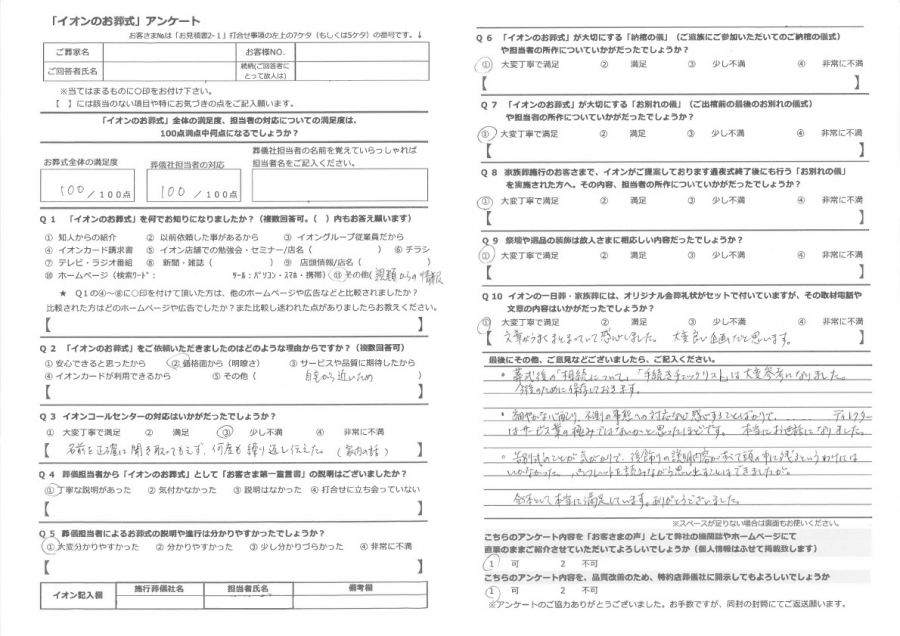 「イオンのお葬式」アンケート
お客さま№は「お見積書2-1」打合せ事項の左上の7ケタ（もしくは5ケタ）の番号です。↓
ご葬家名
お客様NO.
ご回答者氏名
続柄(ご回答者にとって故人は)
※当てはまるものに○印をお付け下さい。
【　】には該当のない項目や特にお気づきの点をご記入願います。
「イオンのお葬式」全体の満足度、担当者の対応についての満足度は、
100点満点中何点になるでしょうか？
お葬式全体の満足度
葬儀社担当者の対応
葬儀社担当者の名前を覚えていらっしゃれば
担当者名をご記入ください。
100 ／100点
100 ／100点
Q１　「イオンのお葬式」を何でお知りになりましたか？（複数回答可。（　）内もお答え願います）
① 知人からの紹介　② 以前依頼した事があるから　③ イオングループ従業員だから
④ イオンカード請求書　⑤ イオン店舗での勉強会・セミナー/店名（　）　⑥ チラシ
⑦ テレビ・ラジオ番組　⑧ 新聞・雑誌（　）　⑨ 店頭情報/店名（　）
⑩ ホームページ（検索ﾜｰﾄﾞ：　ﾂｰﾙ：パソコン・スマホ・携帯）　⑪ その他（親類からの情報
★ Q１の④～⑧に○印を付けて頂いた方は、他のホームページや広告などと比較されましたか？
比較された方はどのホームページや広告でしたか？また比較し迷われた点がありましたらお教えください。
【　】
Q２　「イオンのお葬式」をご依頼いただきましたのはどのような理由からですか？（複数回答可）
① 安心できると思ったから　② 価格面から（明瞭さ）　③ サービスや品質に期待したから
④ イオンカードが利用できるから　⑤ その他（　自宅から近いため　）
【　】
Q３　イオンコールセンターの対応はいかがだったでしょうか？
① 大変丁寧で満足　② 満足　③ 少し不満　④ 非常に不満
【 名前を正確に聞き取ってもらえず、何度も繰り返し伝えた。 】
Q４　葬儀担当者から「イオンのお葬式」として「お客さま第一宣言書」の説明はございましたか？
① 丁寧な説明があった　② 気付かなかった　③ 説明はなかった　④ 打合せに立ち会っていない
【　】
Q５　葬儀担当者によるお葬式の説明や進行は分かりやすかったでしょうか？
① 大変分かりやすかった　② 分かりやすかった　③ 少し分かりづらかった　④ 非常に不満
【　】
イオン記入欄
施行葬儀社名
担当者氏名
備考欄
Q６　「イオンのお葬式」が大切にする「納棺の儀」（ご遺族にご参加いただいてのご納棺の儀式）
や担当者の所作についていかがだったでしょうか？
① 大変丁寧で満足　② 満足　③ 少し不満　④ 非常に不満
【　】
Q７　「イオンのお葬式」が大切にする「お別れの儀」（ご出棺前の最後のお別れの儀式）
や担当者の所作についていかがだったでしょうか？
① 大変丁寧で満足　② 満足　③ 少し不満　④ 非常に不満
【　】
Q８　家族葬施行のお客さまで、イオンがご提案しております通夜式終了後にも行う「お別れの儀」
を実施された方へ。その内容、担当者の所作についていかがだったでしょうか？
① 大変丁寧で満足　② 満足　③ 少し不満　④ 非常に不満
【　】
Q９　祭壇や遺品の装飾は故人さまに相応しい内容だったでしょうか？
① 大変丁寧で満足　② 満足　③ 少し不満　④ 非常に不満
【　】
Q10　イオンの一日葬・家族葬には、オリジナル会葬礼状がセットで付いていますが、その取材電話や
文章の内容はいかがだったでしょうか？
① 大変丁寧で満足　② 満足　③ 少し不満　④ 非常に不満
【 文章がうまくまとまっていて感心しました。　大変良い企画だと思います。 】
最後にその他、ご意見などございましたら、ご記入ください。
・葬式後の「相続について」「手続きチェックリスト」は大変参考になりました。
今後のために保存しておきます。
・細やかな心配り、不測の事態への対応など感心することばかりで、........ ディレクター
はサービス業の極みではないかと思ったほどです。　本当にお世話になりました。
・告別式のことが気がかりで、後飾りの説明内容がすべて頭の中に残るというわけには
いかなかった。パンフレットを読みながら思い出すことはできましたが。
全体として本当に満足しています。ありがとうございました。
※スペースが足りない場合は裏面もお使いください。
こちらのアンケート内容を「お客さまの声」として弊社の機関誌やホームページにて
直筆のままご紹介させていただいてよろしいでしょうか（個人情報はふせて掲載致します）
1　可　2　不可
こちらのアンケート内容を、品質改善のため、特約店葬儀社に開示してもよろしいでしょうか
1　可　2　不可
※アンケートのご協力ありがとうございました。お手数ですが、同封の封筒にてご返送願います。